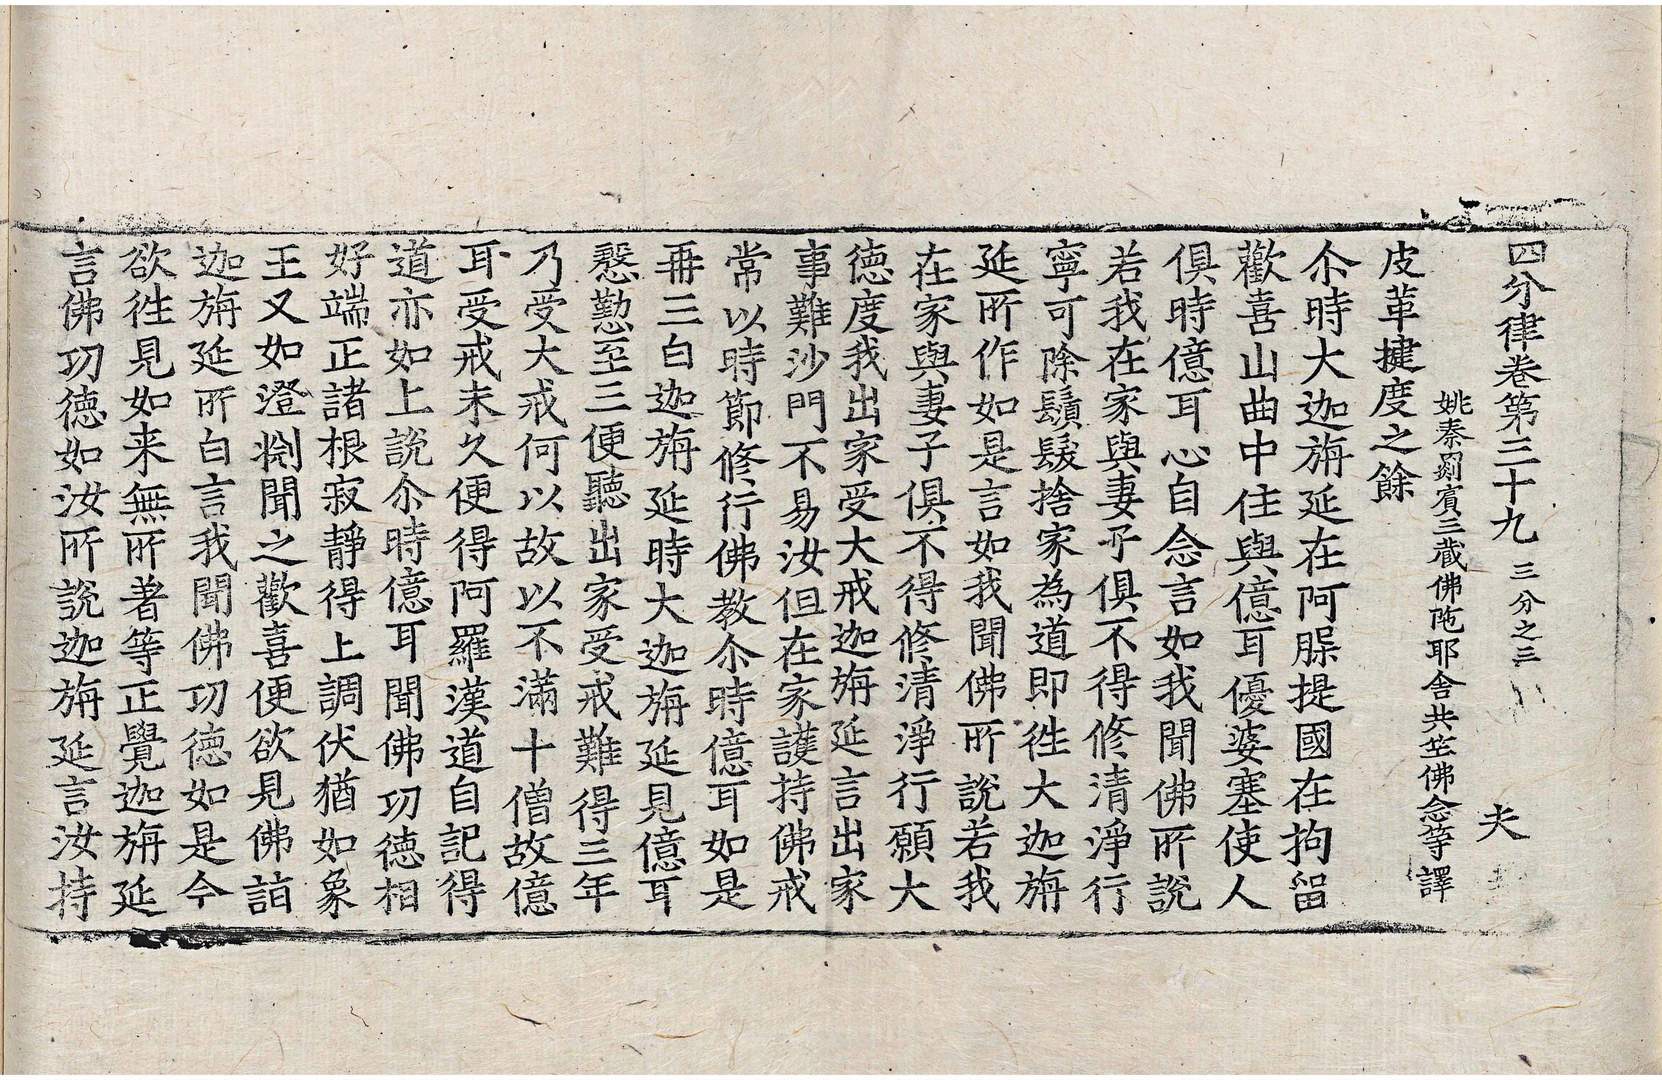 四分律卷第三十九 三分之三 夫
姚秦罽賓三藏佛陁耶舍共竺佛念等譯
皮革揵度之餘
尒時大迦旃延在阿䐗提國在拘留
歡喜山曲中住與億耳優婆塞使人
俱時億耳心自念言如我聞佛所說
若我在家與妻子俱不得修清淨行
寧可除鬚髮捨家為道即徃大迦旃
延所作如是言如我聞佛所說若我
在家與妻子俱不得修清淨行願大
德度我出家受大戒迦旃延言出家
事難沙門不易汝但在家護持佛戒
常以時節修行佛教尒時億耳如是
再三白迦旃延時大迦旃延見億耳
慇懃至三便聽出家受戒難得三年
乃受大戒何以故以不滿十僧故億
耳受戒未久便得阿羅漢道自記得
道亦如上說尒時億耳聞佛功德相
好端正諸根寂靜得上調伏猶如象
王又如澄渕聞之歡喜便欲見佛詣
迦旃延所白言我聞佛功德如是今
欲徃見如来無所著等正覺迦旃延
言佛功德如汝所說迦旃延言汝持